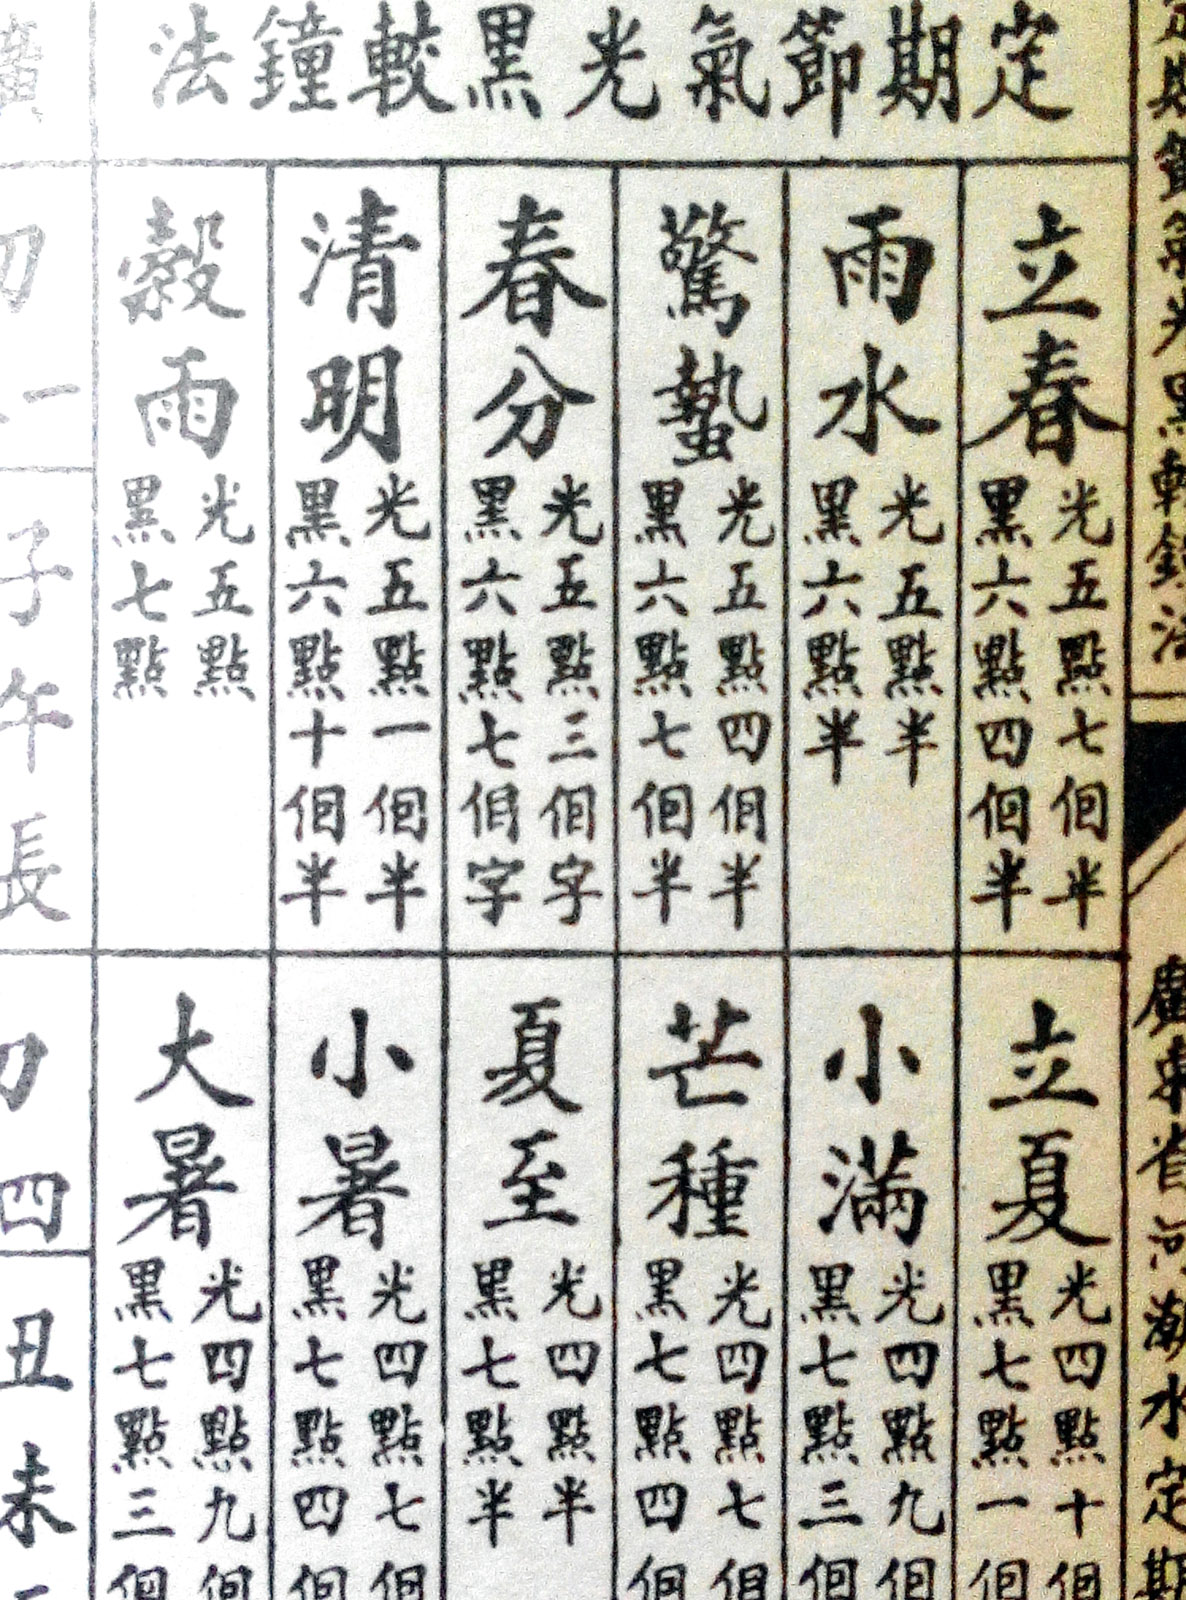 定期節氣光黑較鐘法
立春
光五點七個半
黑六點四個半
雨水
光五點半
黑六點半
驚蟄
光五點四個半
黑六點七個半
春分
光五點三個字
黑六點七個字
清明
光五點一個半
黑六點十個半
穀雨
光五點
黑七點
立夏
光四點十個
黑七點一個
小滿
光四點九個
黑七點三個
芒種
光四點七個
黑七點四個
夏至
光四點半
黑七點半
小暑
光四點七個
黑七點四個
大暑
光四點九個
黑七點三個
定期節氣光黑較鐘法
廣東省河潮水定期
初一
子午長
初四
丑未